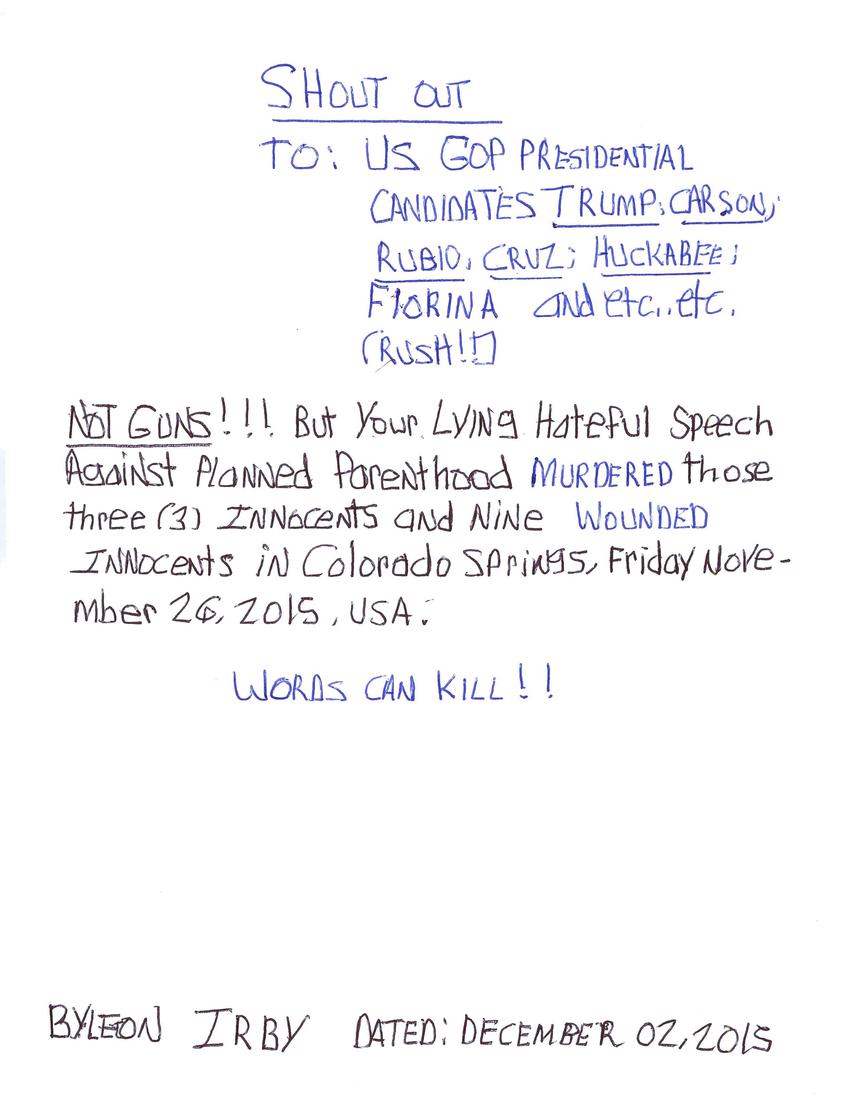 SHOUT OUT
TO: US GOP PRESIDENTIAL
CANDIDATES TRUMP; CARSON;
RUBIO; CRUZ; HUCKABEE;
FIORINA and etc., etc.
(RUSH!!)
NOT GUNS!!! But Your LYING Hateful Speech
Against Planned Parenthood MURDERED those
three (3) INNocents and Nine WOUNDED
INNocents in Colorado Springs, Friday Nove-
mber 26, 2015, USA.
WORDS CAN KILL!!
BY LEON IRBY DATED: DECEMBER 02, 2015